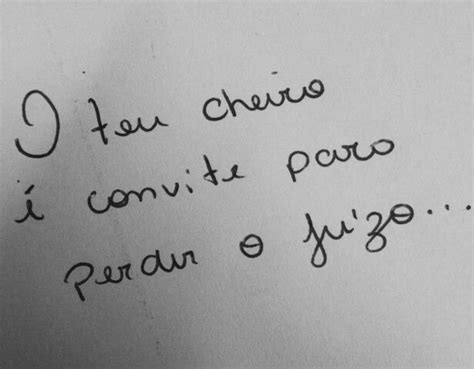 O teu cheiro
é convite para
perder o juízo...